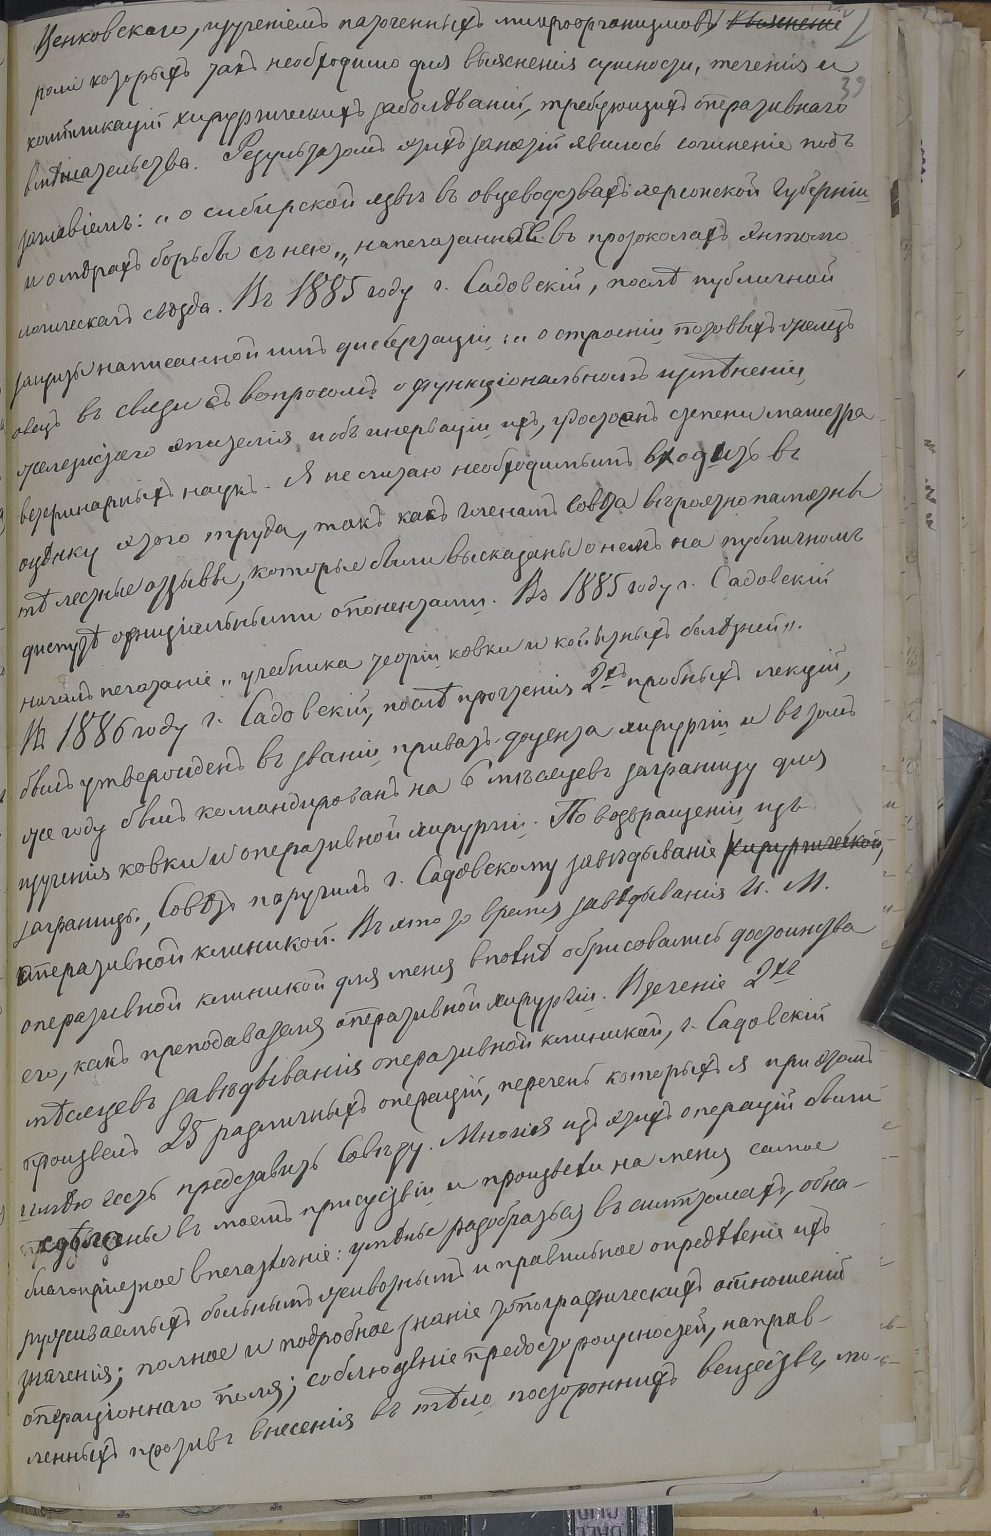 Ценковскаго, изученіемъ патогенныхъ микроорганизмовъ, выясненіе
39
роли которыхъ такъ необходимо для выясненія сущности, теченія и
компликацій хирургическихъ заболѣваній, требующихъ оперативнаго
вмѣшательства. Результатомъ этихъ занятій явилось сочиненіе подъ
заглавіемъ: „о сибирской язвѣ въ овцеводствахъ херсонской губерніи
и о мѣрахъ борьбы съ нею„, напечатанное въ протоколахъ энтомо
логическаго съѣзда. Въ 1885 году г. Садовскій, послѣ публичной
защиты написанной имъ диссертаціи: „о строеніи потовыхъ железъ
овецъ въ связи съ вопросомъ о функціональномъ измѣненіи
железистаго эпителія и объ инерваціи ихъ, удостоенъ степени магистра
ветеринарныхъ наукъ. Я не считаю необходимымъ входить въ
оцѣнку этого труда, такъ какъ членамъ Совѣта вѣроятно памятны
тѣ лестные отзывы, которые были высказаны о немъ на публичномъ
диспутѣ официальными опонентами. Въ 1885 году г. Садовскій
началъ печатаніе „учебника теоріи ковки и копытныхъ болѣзней".
Въ 1886 году г. Садовскій, послѣ прочтенія 2хъ пробныхъ лекцій,
былъ утвержденъ въ званіи приватъ-доцента хирургіи и въ томъ
же году былъ командированъ на 6 мѣсяцевъ заграницу для
изученія ковки и оперативной хирургіи. По возвращеніи изъ
заграницы, Совѣтъ поручилъ г. Садовскому завѣдываніе хирургической
оперативной клиникой. Въ это то время завѣдыванія И. М.
оперативной клиникой для меня вполнѣ обрисовались достоинства
его, какъ преподавателя оперативной хирургіи. Втеченіе 2хъ
мѣсяцевъ завѣдыванія оперативной клиникой, г. Садовскій
произвелъ 25 различныхъ операцій, перечень которыхъ я при этомъ
имѣю честь представить Совѣту. Многія изъ этихъ операцій были
сдѣланы въ моемъ присутствіи и произвели на меня самое
благопріятное впечатлѣніе: умѣнье разобраться въ симптомахъ, обна-
руживаемыхъ больнымъ животнымъ и правильное опредѣленіе ихъ
значенія; полное и подробное знаніе топографическихъ отношеній
операціоннаго поля; соблюденіе предосторожностей, направ-
ленныхъ противъ внесенія въ тѣло постороннихъ веществъ, мо-